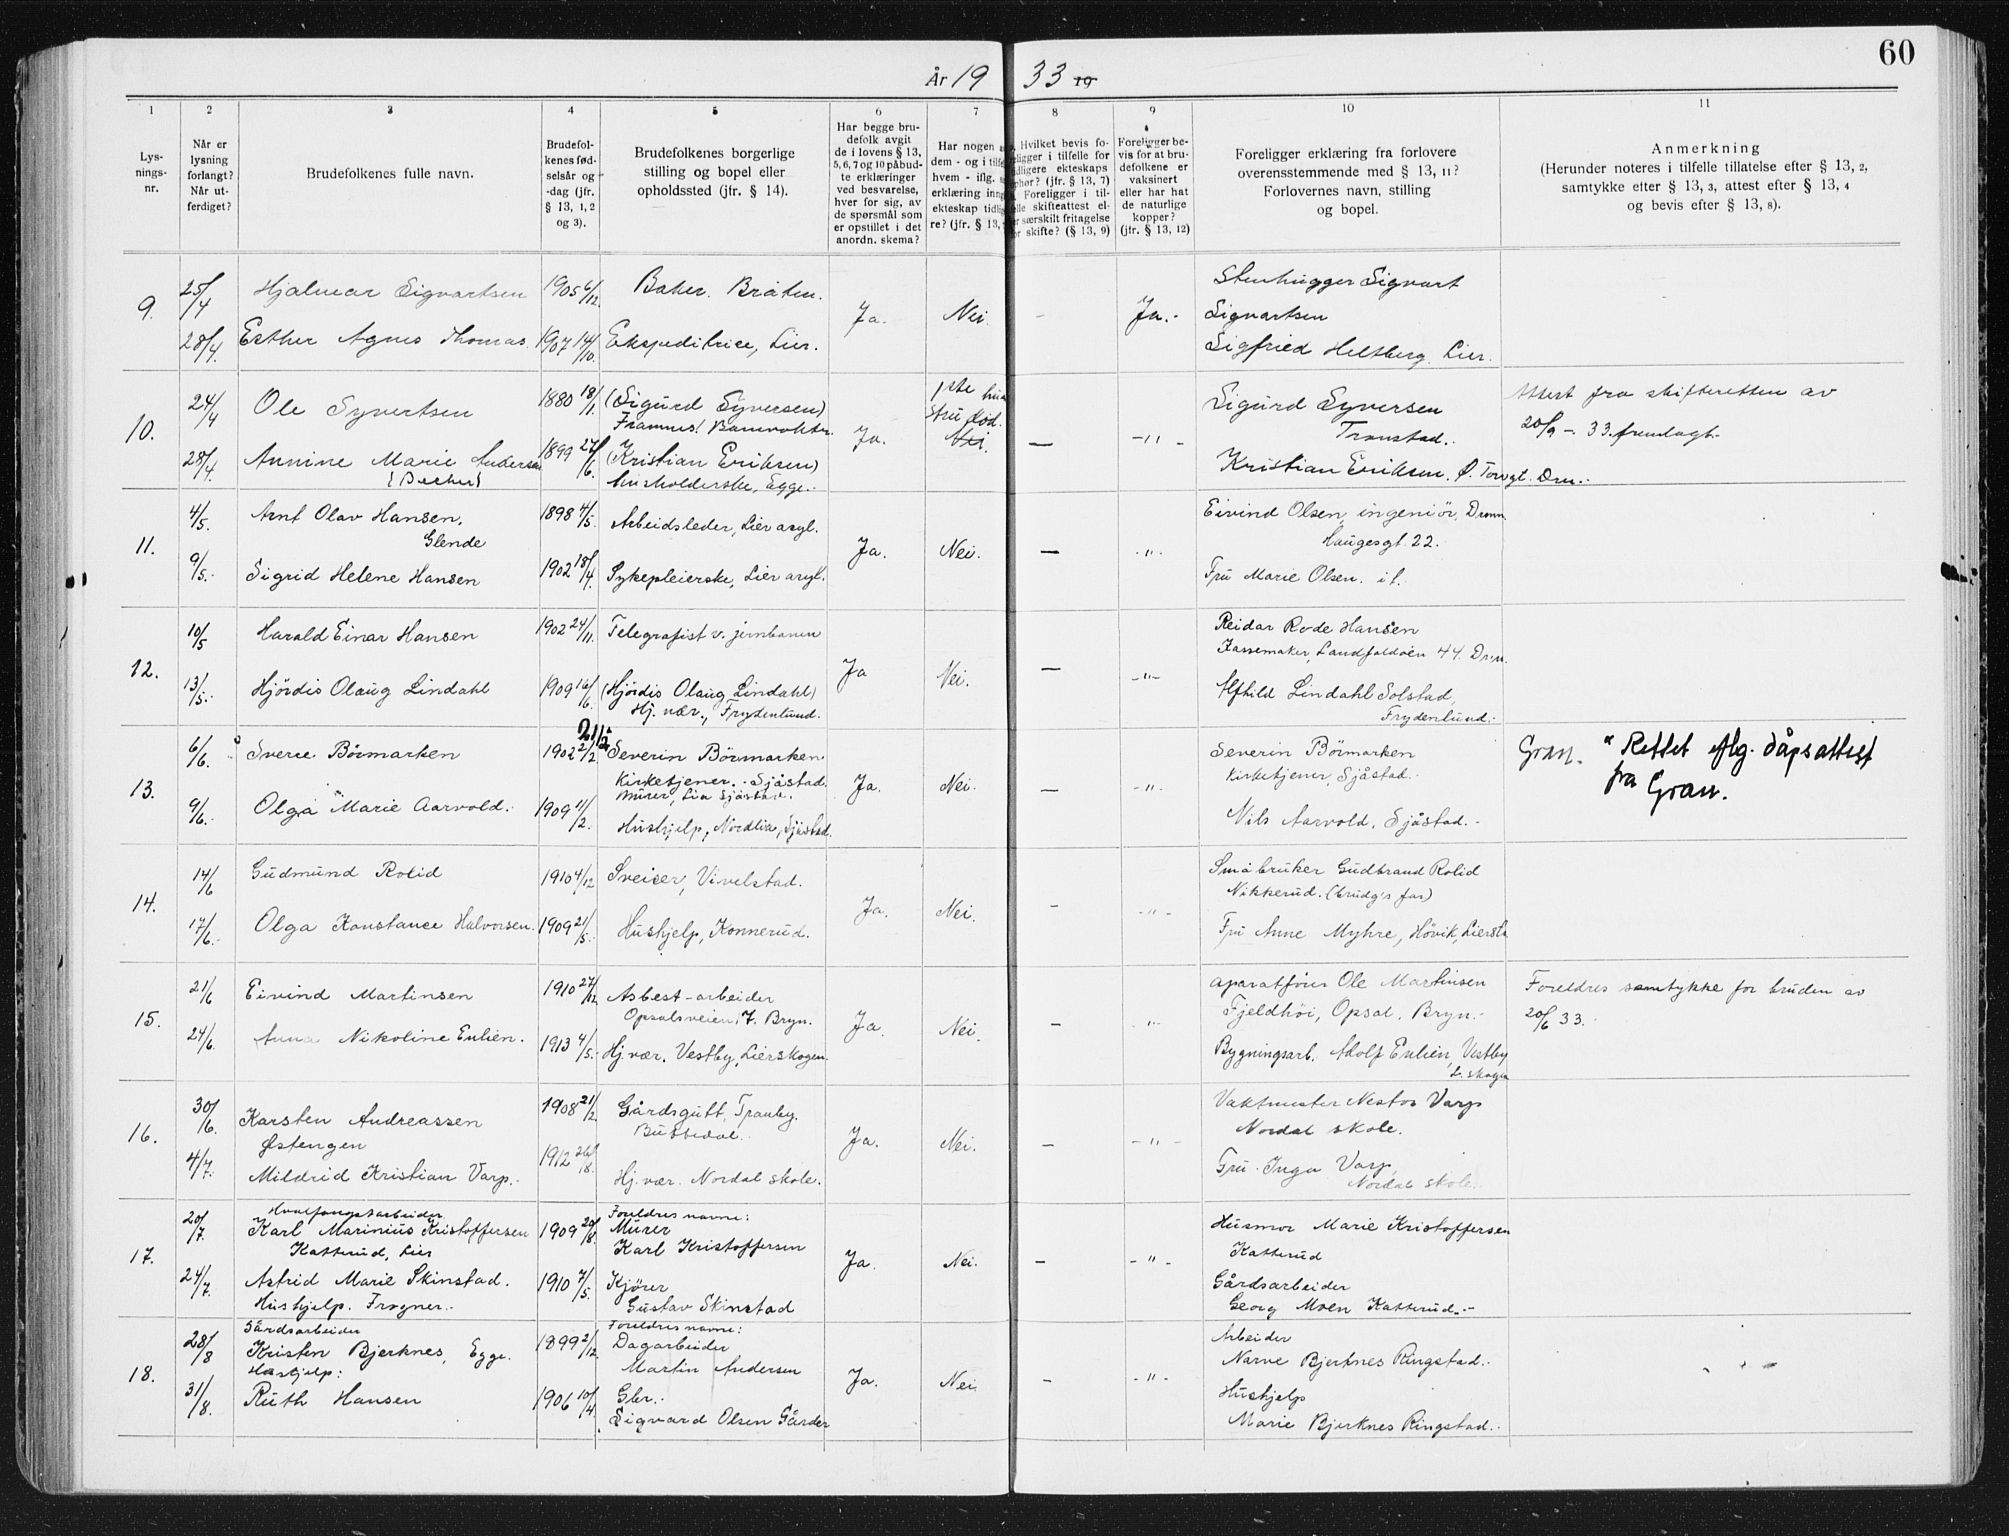 60
År 19 33 19
1 2 3 4 5 6 7 8 9 10 11
Lys-
nings-
nr.
Når er
lysning
forlangt?
Når ut-
ferdiget?
Brudefolkenes fulle navn.
Brudefol-
kenes fød-
selsår og
-dag (jfr.
§ 13, 1, 2
og 3).
Brudefolkenes borgerlige
stilling og bopel eller
opholdssted (jfr. § 14).
Har begge bru-
defolk avgit
de i lovens § 13,
5, 6, 7 og 10 påbud-
te erklæringer
ved besvarelse,
hver for sig, av
de spørsmål som
er opstillet i det
anordn. skema?
Har nogen
dem - og i tilfe
hvem - iflg.
erklæring inng
ekteskap tidlig
re? (jfr. § 13,
Hvilket bevis fo-
religger i tilfelle for
tidligere ekteskaps
ophør? (jfr. § 13, 7)
Foreligger i til-
felle skifteattest el-
ler særskilt fritagelse
for skifte? (§ 13, 9)
Foreligger be-
vis for at bru-
defolkene er
vaksinert
eller har hat
de naturlige
kopper?
(jfr. § 13, 12)
Foreligger erklæring fra forlovere
overensstemmende med § 13, 11?
Forlovernes navn, stilling
og bopel.
Anmerkning
(Herunder noteres i tilfelle tillatelse efter § 13, 2,
samtykke etter § 13, 3, attest efter § 13, 4
og bevis efter § 13, 8).
9.
25/4
28/4.
Hjalmar Sigvartsen
Esther Agnes Thomas.
1905 6/12.
1907 14/10.
Baker. Bråten.
Ekspeditrice, Lier.
Ja.
Nei.
-
Ja.-
Stenhugger Sigvart
Sigvartsen
Sigfried Heltberg Lier.
10.
24/4
28/4.
Ole Syvertsen
Annine Marie Andersen
(Becher)
1880 18/1.
1899 27/6.
(Sigurd Syversen)
Framnes! Banevokter.
(Kristian Eriksen)
husholderske, Egge.-
Ja.
1ste hu
stru død.
Nei.
-
-"-
Sigurd Syversen
Tronstad.
Kristian Eriksen. Ø. Torvgt. Drm.
Attest fra skifteretten av
20/9 - 33 fremlagt.
11.
4/5.
9/5.
Arnt Olav Hansen,
Glende
Sigrid Helene Hansen
1898 4/5.
1902 18/4.
Arbeidsleder, Lier asyl.
Sykepleierske, Lier asyl.
Ja.
Nei.
-
-"-
Eivind Olsen, ingeniör, Dramm.
Haugesgt. 22.
Fru Marie Olsen. i l.
12.
10/5
13/5.
Harald Einar Hansen
Hjördis Olaug Lindahl
1902 24/11.
1909 16/6.
Telegrafist v. jernbanen
(Hjördis Olaug Lindahl)
Hj. vær., Frydenlund.
Ja
Nei.
-
-"-
Reidar Rode Hansen
Kassemaker, Landfaldöen 44. Drm.
Alfhild Lindahl Solstad,
Frydenlund.
13.
6/6.
9/6.
Sverre Börmarken
Olga Marie Aarvold.
21/2
1902 2/2
1909 11/2.
Severin Börmarken
Kirketjener. - Sjåstad.
Murer, Lia Sjåstad.
Hushjelp, Nordlia, Sjåstad.
Ja.
Nei.
-
-"-
Severin Börmarken
Kirketjener, Sjåstad.
Nils Aarvold, Sjåstad.-
Gran. * Rettet iflg. dåpsattest
fra Gran.
14.
14/6
17/6.
Gudmund Rolid
Olga Konstance Halvorsen.
1910 4/12
1909 21/5.
Sveiser, Vivelstad.
Hushjelp, Konnerud.
Ja.
Nei.
-
-"-
Småbruker Gudbrand Rolid
Nikkerud. (brudg's far)
Fru Anne Myhre, Hövik, Lierst
15.
21/6
24/6.
Eivind Martinsen
Anna Nikoline Enlien.
1910 27/12.
1913 4/5.
Asbest-arbeider
Opsalsveien 7. Bryn.
Hj. vær. Vestby, Lierskogen.
Ja.
Nei.
-
-"-
Aparatförer Ole Martinsen
Fjeldhöi, Opsal, Bryn.-
Bygningsarb. Adolf Enlien, Vestby
L. skogen
Foreldres samtykke for bruden av
20/6 33.
16.
30/6.
4/7.
Karsten Andreassen
Østengen
Mildrid Kristian Varp.
1908 21/2.
1912 26/8.
Gårdsgutt, Tranby.
Buttedal.
Hj. vær. Nordal skole.
Ja.
Nei.
-
-"-
Vaktmester Nestor Varp
Nordal skole.
Fru Inga Varp,
Nordal skole.
17.
20/7.
24/7.
Hvalfangstarbeider
Karl Marinius Kristoffersen
Katterud, Lier
Astrid Marie Skinstad.
Hushjelp. Frogner.
1909 20/8.
1910 7/5.
Foreldres navne:
Murer
Karl Kristoffersen
Kjører
Gustav Skinstad
Ja.
Nei.
-
-"-
Husmor Marie Kristoffersen
Katterud
Gårdsarbeider
Georg Moen Katterud.-
18.
28/8
31/8.
Gårdsarbeider
Kristen Bjerknes, Egge.
Hushjelp:
Ruth Hansen
1899 2/12.
1906 10/4.
Foreldres navne:
Dagarbeider
Martin Andersen
Gbr.
Sigvard Olsen Gårder
Ja.
Nei.
-
-"-
Arbeider
Narve Bjerknes Ringstad.
Hushjelp
Marie Bjerknes Ringstad.